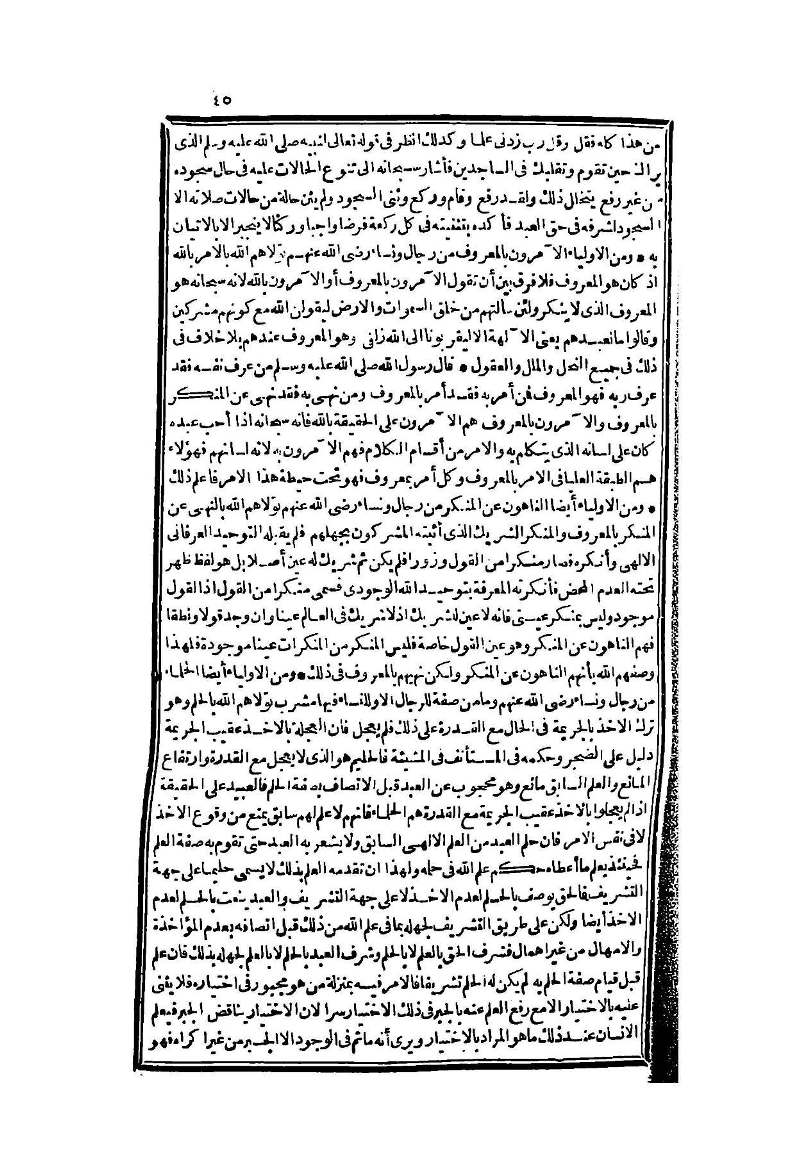 ٤٥
من هذا كله فقل وقل رب زدنى علما وكذلك انظر فى قوله تعالى لنبيه صلى الله عليه وسلم الذى
يراك حين تقوم وتقلبك فى الساجدين فأشار سبحانه الى تنوع الحالات عليه فى حال سجوده
من غير رفع يتخلل ذلك ولقد رفع وقام وركع وثنى السجود ولم يثن حالة من حالات صلاته الا
السجود لشرفه فى حق العبد فأكده بتثنيته فى كل ركعة فرضا واجبا وركنا لا ينجبر الا بالاتيان
به ٭ ومن الاولياء الآمرون بالمعروف من رجال ونساء رضى الله عنهم تولاهم الله بالامر بالله
اذ كان هو المعروف فلا فرق بين أن تقول الآمرون بالمعروف أو الآمرون بالله لانه سبحانه هو
المعروف الذى لا ينكر ولئن سألتهم من خلق السموات والارض ليقولن الله مع كونهم مشركين
وقالوا ما نعبدهم يعنى الآلهة الا ليقربونا الى الله زلفى وهو المعروف عندهم بلا خلاف فى
ذلك فى جميع النحل والملل والعقول ٭ قال رسول الله صلى الله عليه وسلم من عرف نفسه فقد
عرف ربه فهو المعروف فمن أمر به فقد أمر بالمعروف ومن نهى به فقد نهى عن المنكر
بالمعروف والآمرون بالمعروف هم الآمرون على الحقيقة بالله فانه سبحانه اذا أحب عبده
كان على لسانه الذى يتكلم به والامر من أقسام الكلام فهم الآمرون به لانه لسانهم فهؤلاء
هم الطبقة العليا فى الامر بالمعروف وكل أمر بمعروف فهو تحت حيطة هذا الامر فاعلم ذلك
٭ ومن الاولياء أيضا الناهون عن المنكر من رجال ونساء رضى الله عنهم تولاهم الله بالنهى عن
المنكر بالمعروف والمنكر الشريك الذى أثبته المشركون بجهلهم فلم يقبله التوحيد العرفانى
الالهى وأنكره فصار منكرا من القول وزورا فلم يكن ثم شريك له عين أصلا بل هو لفظ ظهر
تحته العدم المحض فأنكرته المعرفة بتوحيد الله الوجودى فسمى منكرا من القول اذا القول
موجود وليس بمنكر عينى فانه لا عين لشريك اذ لا شريك فى العالم عينا وان وجد قولا ونطقا
فهم الناهون عن المنكر وهو عين القول خاصة فليس المنكر من المنكرات عينا موجودة فلهذا
وصفهم الله بأنهم الناهون عن المنكر ولكن نهيهم بالمعروف فى ذلك ٭ ومن الاولياء أيضا الحلماء
من رجال ونساء رضى الله عنهم وما من صفة للرجال الا وللنساء فيها مشرب تولاهم الله بالحلم وهو
ترك الاخذ بالجريمة فى الحال مع القدرة على ذلك فلم يعجل فان العجلة بالاخذ عقيب الجريمة
دليل على الضجر وحكمه فى المستأنف فى المشيئة فالحليم هو الذى لا يعجل مع القدرة وارتفاع
المانع والعلم السابق مانع وهو محجوب عن العبد قبل الاتصاف بصفة الحلم فالعبيد على الحقيقة
اذا لم يعجلوا بالاخذ عقيب الجريمة مع القدرة هم الحلماء فانهم لا علم لهم سابق يمنع من وقوع الاخذ
لا فى نفس الامر فان حلم العبد من العلم الالهى السابق ولا يشعر به العبد حتى تقوم به صفة العلم
فحينئذ يعلم ما أعطاه حكم علم الله فى حلمه ولهذا ان تقدمه العلم بذلك لا يسمى حليما على جهة
التشريف فالحق يوصف بالحلم لعدم الاخذ لا على جهة التشريف والعبد ينعت بالحلم لعدم
الاخذ أيضا ولكن على طريق التشريف لجهله بما فى علم الله من ذلك قبل اتصافه بعدم المؤاخذة
والامهال من غير اهمال فشرف الحق بالعلم لا بالحلم وشرف العبد بالحلم لا بالعلم لجهله بذلك فان علم
قبل قيام صفة الحلم به لم يكن له الحلم تشريفا فالامر فيه بمنزلة من هو مجبور فى اختياره فلا يثنى
عليه بالاختيار الا مع رفع العلم عنه بالجبر فى ذلك الاختيار سرا لان الاختيار يناقض الجبر فيعلم
الانسان عند ذلك ما هو المراد بالاختيار ويرى أنه ما ثم فى الوجود الا الجبر من غير اكراه فهو